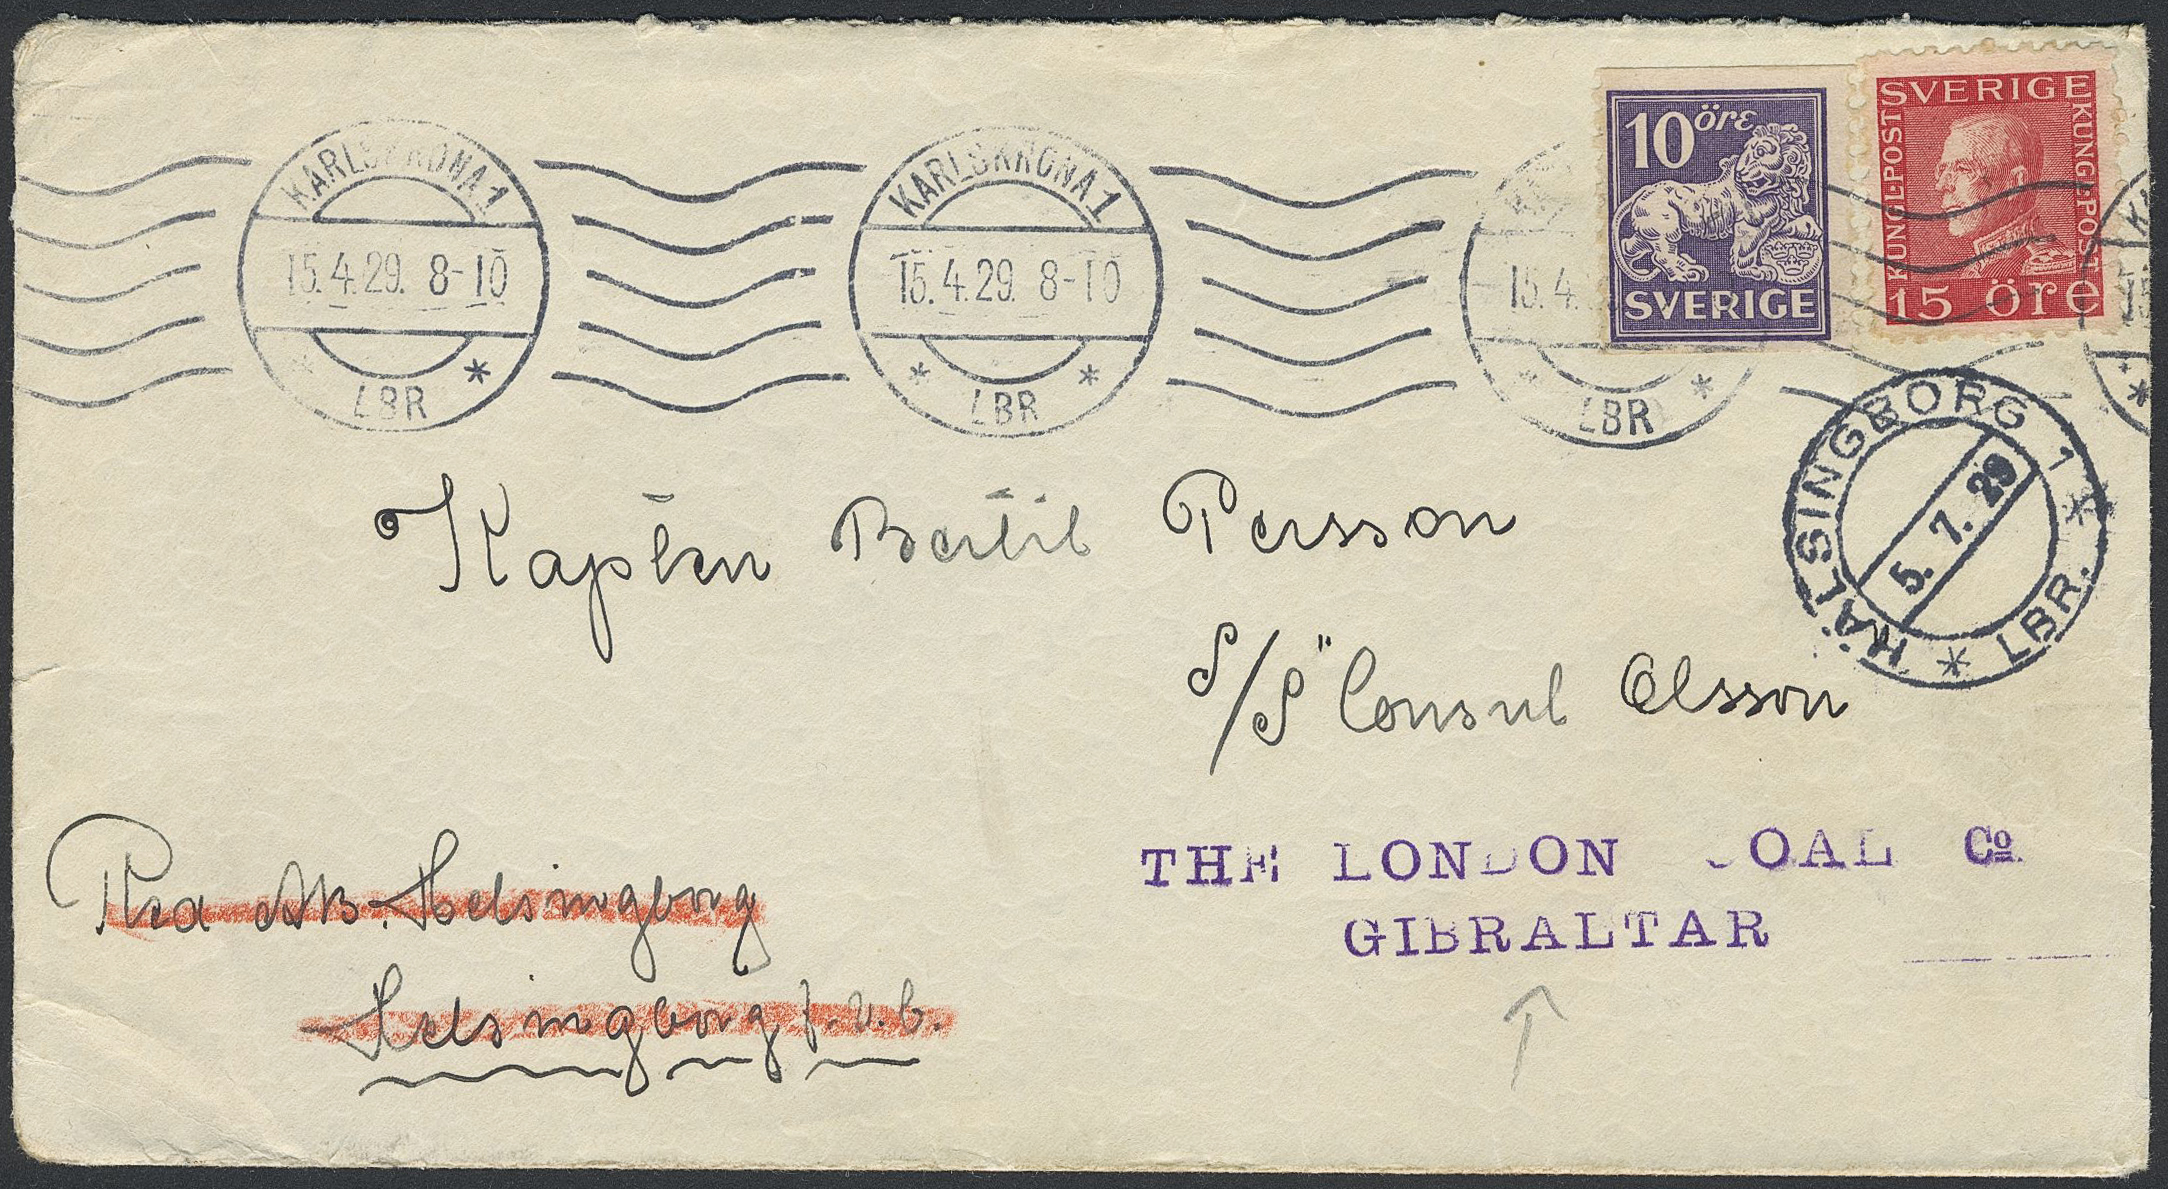 KARLSKRONA 1
15.4.29. 8-10
LBR
KARLSKRONA 1
15.4.29. 8-10
LBR
15.4.
LBR
10 öre
SVERIGE
SVERIGE
KUNGL POST
KUNGL POST
15 öre
HÄLSINGBORG 1
5. 7. 29
LBR.
Kapten Bertil Persson
S/S "Consul Olsson
THE LONDON COAL Co
GIBRALTAR
AB. Helsingborg
Helsingborg f.v.b.